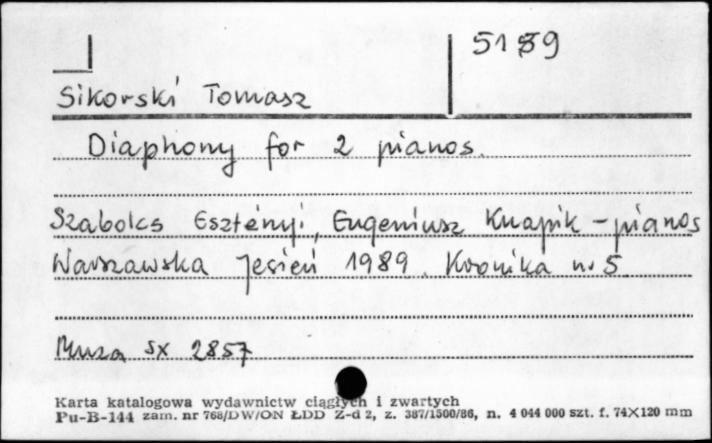 5189
Sikorski Tomasz
Diaphony for 2 pianos.
Szabolcs Esztényi, Eugeniusz Knapik – pianos
Warszawska Jesień 1989. Kronika nr 5
Muza SX 2857
Karta katalogowa wydawnictw ciągłych i zwartych
Pu-B-144 zam. nr 768/DW/ON ŁDD Z-d 2, z. 387/1500/86, n. 4 044 000 szt. f. 74X120 mm